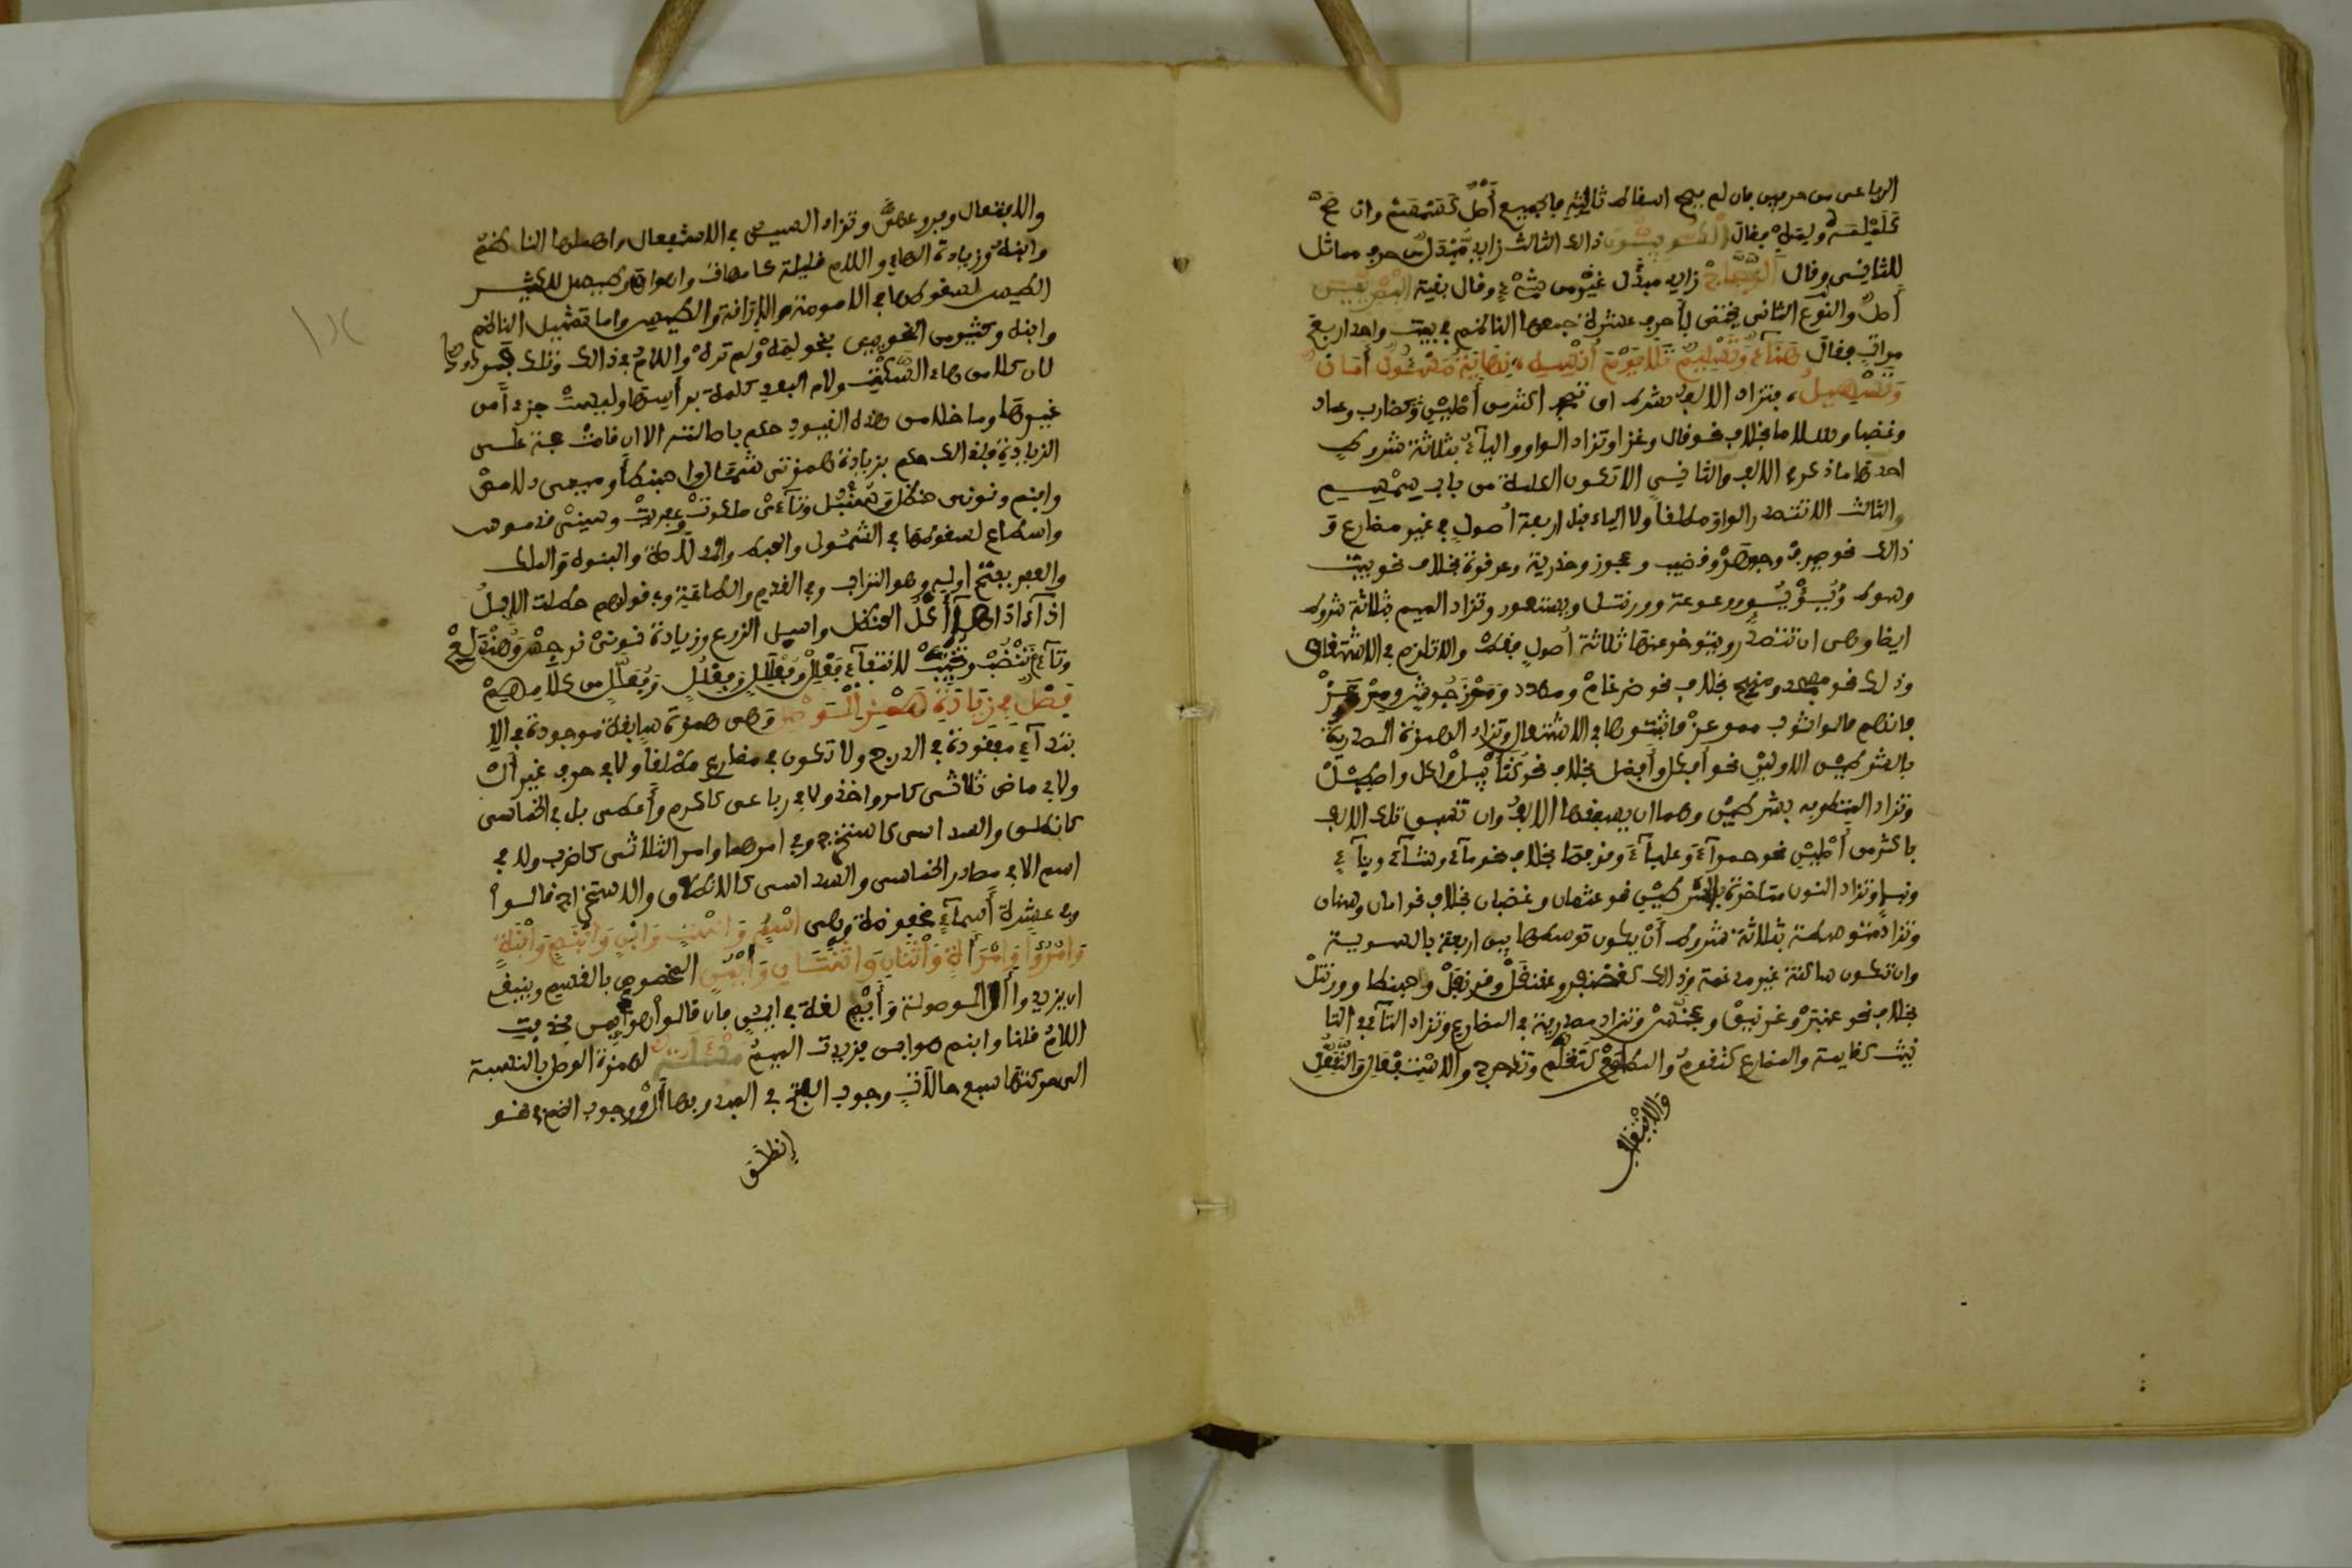 الرباعي من حرفين فان لم يصح اسقاط ثالثه فالجميع أصل كسمسم وان صح
كلملمه فقال الكوفيون ذلك الثالث زايد مبدل من حرف مماثل
للثاني وقال الزجاج زايد مبدل غير من شيء وقال بقية البصريين
أصل والنوع الثاني يختص بأحرف عشرة جمعها الناظم في بيت واحد اربع
مرات فقال هناء وتسليم تلا يوم أنسه نهاية مسؤول أمان
وتسهيل فتزاد الالف بشرط ان تصحب اكثر من أصلين كضارب وعماد
وغضبا وسلاما بخلاف نحو قال وغزا وتزاد الواو والياء بثلاثة شروط
احدها ما ذكر في الالف والثاني الا تكون الكلمة من باب سمسم
والثالث الا تتصدر الواو مطلقا ولا الياء قبل اربعة أصول في غير مضارع و
ذلك نحو صيرف وجوهر وقضيب وعجوز وحذرية وعرقوة بخلاف نحو بيت
وسوط ويؤيؤ ووعوعة وورنتل ويستعور وتزاد الميم بثلاثة شروط
ايضا وهي ان تتصدر ويتاخر عنها ثلاثة أصول فقط والا تلزم في الاشتقاق
وذلك نحو مسجد ومنبج بخلاف نحو ضرغام ومهد ومرزجوش ومرعز
فانهم قالوا ثوب ممرعز فاثبتوها في الاشتقاق وتزاد الهمزة المصدرة
بالشرطين الاولين نحو أفكل وأفضل بخلاف نحو كنأبيل وأكل واصطبل
وتزاد المتطرفة بشرطين وهما ان يسبقها الالف وان تسبق تلك الالف
باكثر من أصلين نحو حمراء وعلباء وقرفصاء بخلاف نحو ماء وشاء وبناء
ونبا وتزاد النون متاخرة بالشرطين نحو عثمان وغضبان بخلاف نحو امان وسنان
وتزاد متوسطة بثلاثة شروط أن يكون توسطها بين اربعة بالسوية
وان تكون ساكنة غير مدغمة وذلك كغضنفر وعقنقل وقرنفل وحبنطا وورنتل
بخلاف نحو عنبر وغرنيق وعجنس وتزاد مصدرة في المضارع وتزاد التاء في التا
نيث كقايمة والمضارع كتقوم والمطاوع كتعلم وتدحرج والاستفعال والتفعل
والافتعال
والافتعال وفروعهن وتزاد السين في الاستفعال واهملها الناظم
وابنه وزيادة الهاء واللام قليلة كامهات واهراق وطيسل للكثير
الطيس لسقوطها في الامومة والاراقة والطيس واما تمثيل الناظم
وابنه وكثير من النحويين نحو لمه ولم تره واللام في ذلك وتلك فمردود
لان كلا من هاء السكت ولام البعد كلمة براسها وليست جزء امن
غيرها وما خلا من هذه القيود حكم باصالته الا ان قامت حجة على
الزيادة فلذلك حكم بزيادة همزتي شمأل واحبنطأ وميمي دلامص
وابنم ونوني حنظل وسنبل وتاءي ملكوت وعفريت وسيني قدموس
واسطاع لسقوطها في الشمول والحبط والدلاصة والبنوة والملك
والعفر بفتح أوله وهو التراب وفي القدم والطاعة وفي قولهم حظلت الابل
اذا اذاها أكل الحنظل واسبل الزرع وزيادة نوني نرجس وهندلع
وتاء تنضب وتخيب لانتفاء فعلل وفعلل وفعلل وفعلل من كلامهم
فصل في زيادة همزة الوصل وهي همزة سابقة موجودة في الا
بتداء مفقودة في الدرج ولا تكون في مضارع مطلقا ولا في حرف غير أل
ولا في ماض ثلاثي كامر واخذ ولا في رباعي كاكرم وأعطى بل في الخماسي
كانطلق والسداسي كاستخرج وفي امرهما وامر الثلاثي كاضرب ولا في
اسم الا في مصادر الخماسي والسداسي كالانطلاق والاستخراج قالوا
وفي عشرة أسماء محفوظة وهي اسم واست وابن وابنم وابنة
وامرؤ وامرأة واثنان واثنتان وأيمن المخصوص بالقسم وينبغي
ان يزيدوا أل الموصولة وأيم لغة في ايمن فان قالوا هي أيمن فحذفت
اللام قلنا وابنم هو ابن فزيدت الميم مسئلة لهمزة الوصل بالنسبة
الى حركتها سبع حالات وجوب الفتح في المبدو بها أل ووجوب الضم في نحو
انطلق